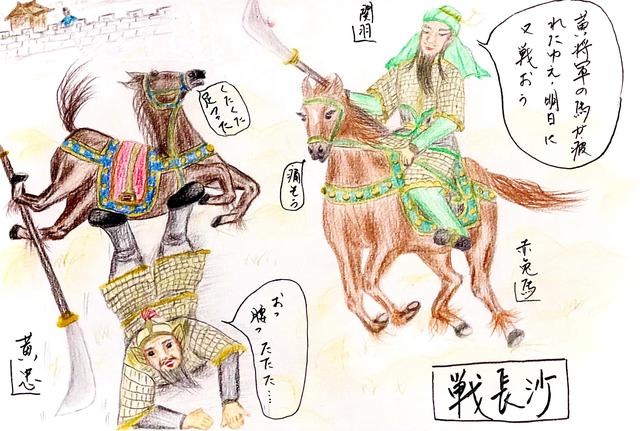 関羽
黄将軍の馬が疲
れたゆえ・明日に
又戦おう
くたくた
足つった
痛そう
赤兎馬
おっ
腰ったたた…
黄忠
戦長沙